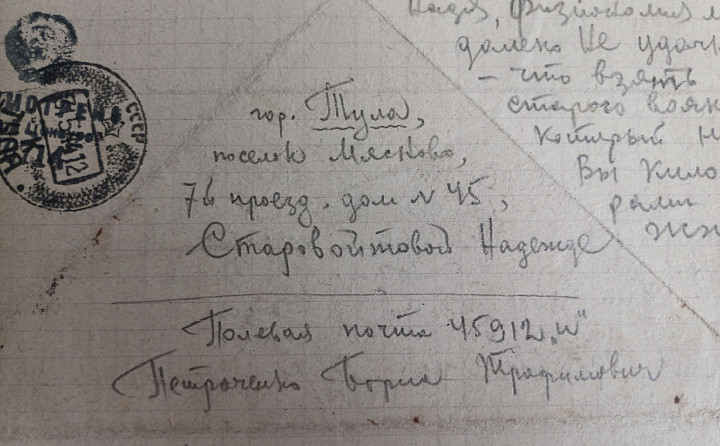 гор. Тула,
поселок Мясново,
7й проезд. дом N 45,
Старовойтовой Надежде
Полевая почта 45912 „и"
Петраченко Борис Трофимович
Надя, Физиономия
далеко не удач
– что взять
старого вояк
который н
Вы кило
СССР